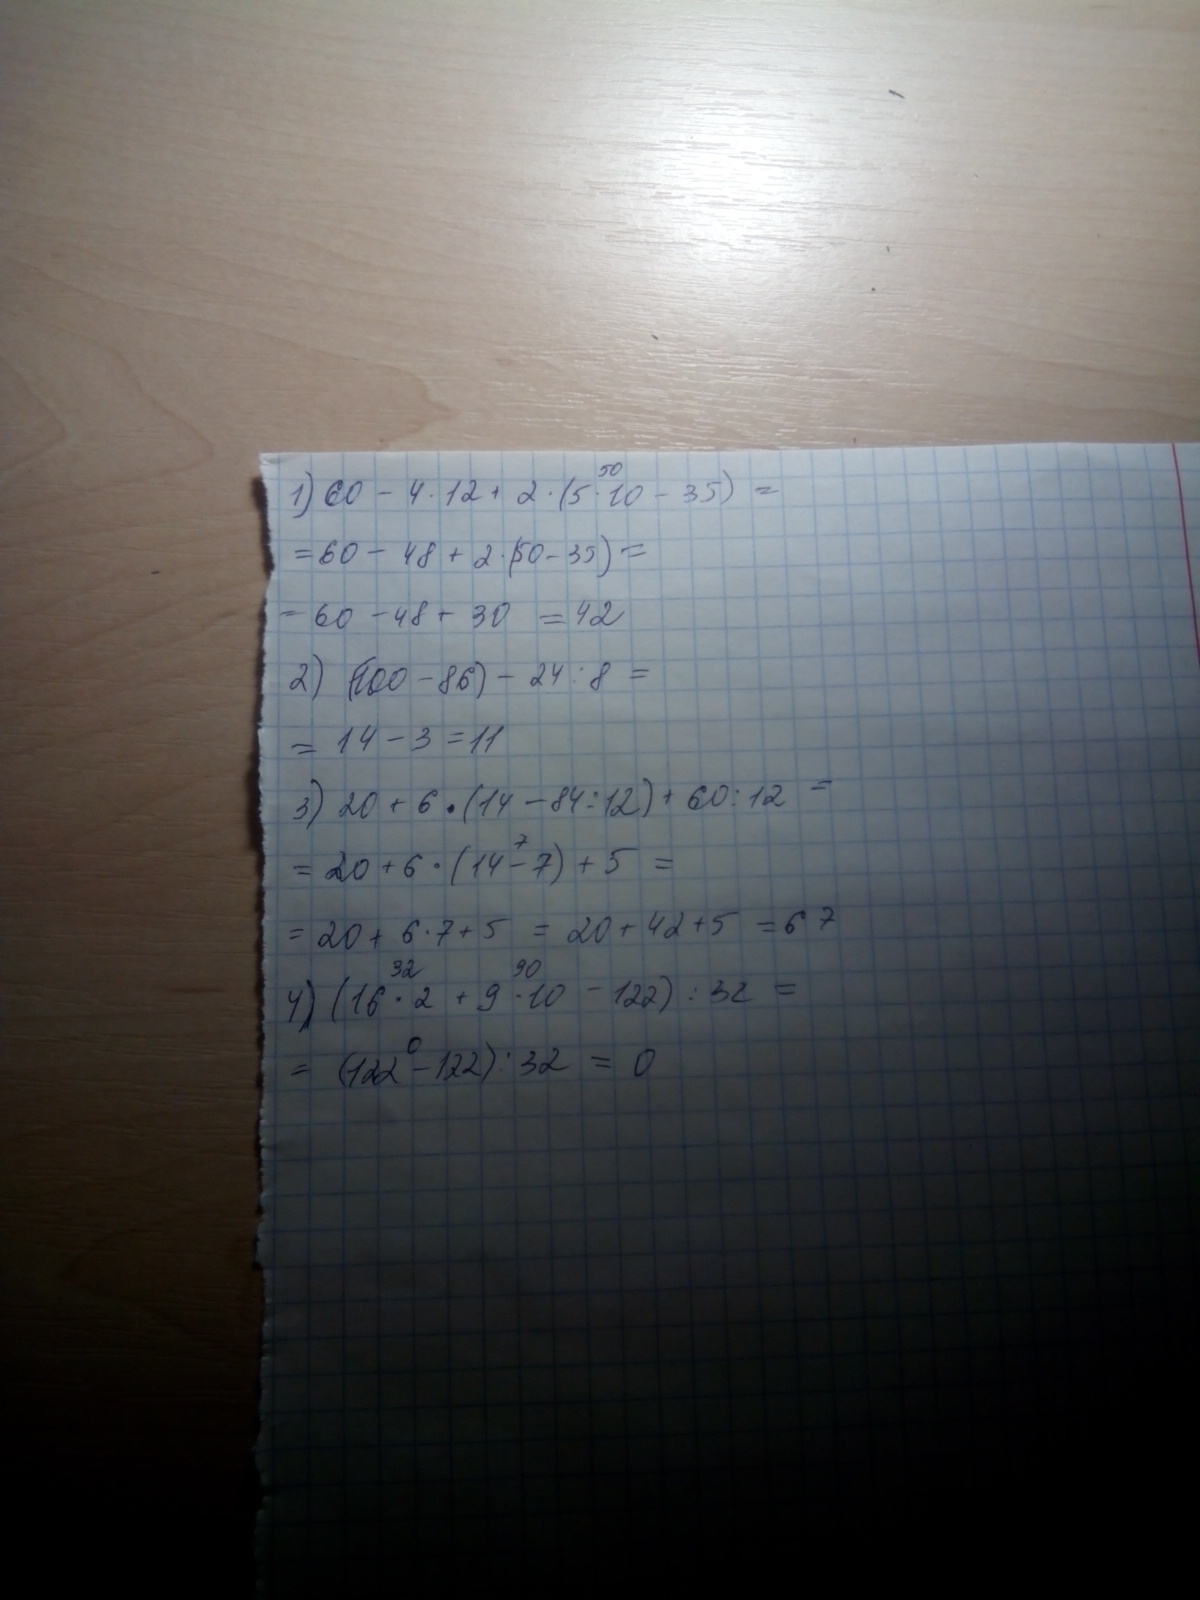 1) 60 - 4 · 12 + 2 · (5 · 10 - 35) =
50
= 60 - 48 + 2 · (50 - 35) =
= 60 - 48 + 30 = 42
2) (100 - 86) - 24 : 8 =
= 14 - 3 = 11
3) 20 + 6 · (14 - 84 : 12) + 60 : 12 =
7
= 20 + 6 · (14 - 7) + 5 =
= 20 + 6 · 7 + 5 = 20 + 42 + 5 = 67
32 90
4) (16 · 2 + 9 · 10 - 122) : 32 =
0
= (122 - 122) : 32 = 0